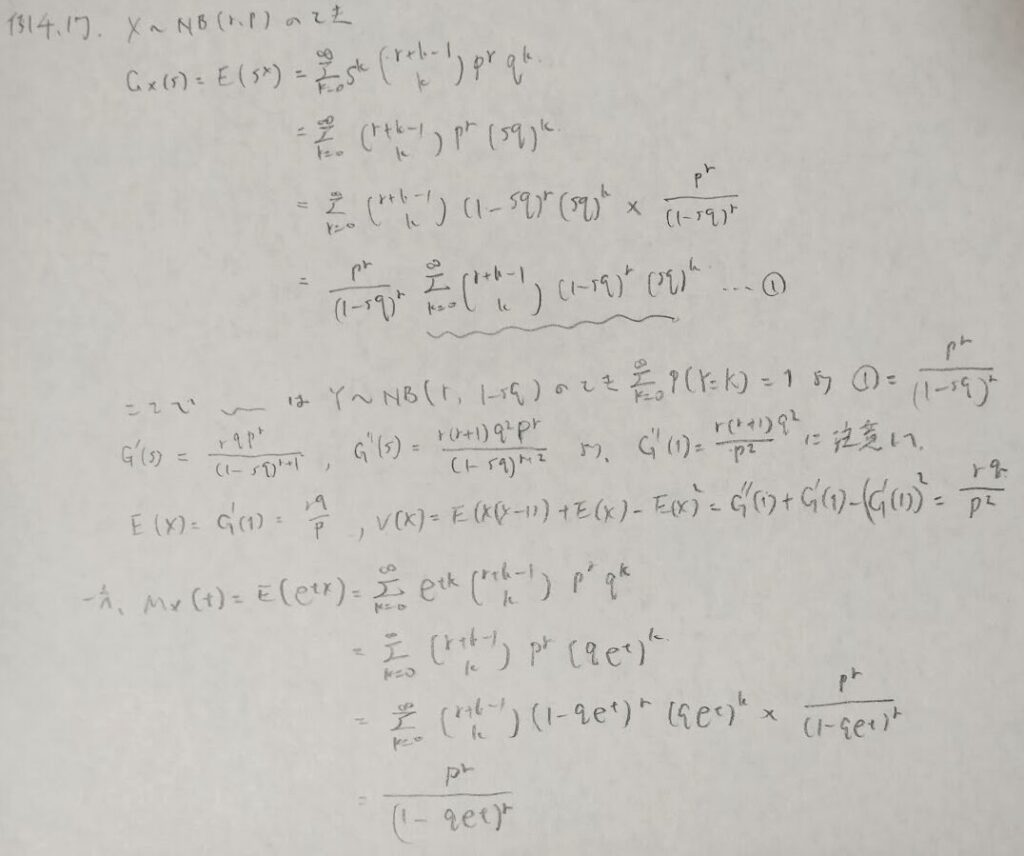 例4.17. X ~ NB(r, p) のとき
G_X(s) = E(s^X) = Σ_{k=0}^{∞} s^k (r+k-1 k) p^r q^k.
= Σ_{k=0}^{∞} (r+k-1 k) p^r (sq)^k.
= Σ_{k=0}^{∞} (r+k-1 k) (1-sq)^r (sq)^k × p^r/(1-sq)^r
= p^r/(1-sq)^r Σ_{k=0}^{∞} (r+k-1 k) (1-sq)^r (sq)^k … ①
ここで 〰 は Y ~ NB(r, 1-sq) のとき Σ_{k=0}^{∞} P(Y=k) = 1 より ① = p^r/(1-sq)^r
G'(s) = rqp^r/(1-sq)^{r+1}, G''(s) = r(r+1)q^2p^r/(1-sq)^{r+2} より, G''(1) = r(r+1)q^2/p^2 に注意して,
E(X) = G'(1) = rq/p, V(X) = E(X(X-1)) + E(X) - E(X)^2 = G''(1) + G'(1) - (G'(1))^2 = rq/p^2
一方、M_X(t) = E(e^{tX}) = Σ_{k=0}^{∞} e^{tk} (r+k-1 k) p^r q^k
= Σ_{k=0}^{∞} (r+k-1 k) p^r (qe^t)^k.
= Σ_{k=0}^{∞} (r+k-1 k) (1-qe^t)^r (qe^t)^k × p^r/(1-qe^t)^r
= p^r/(1-qe^t)^r